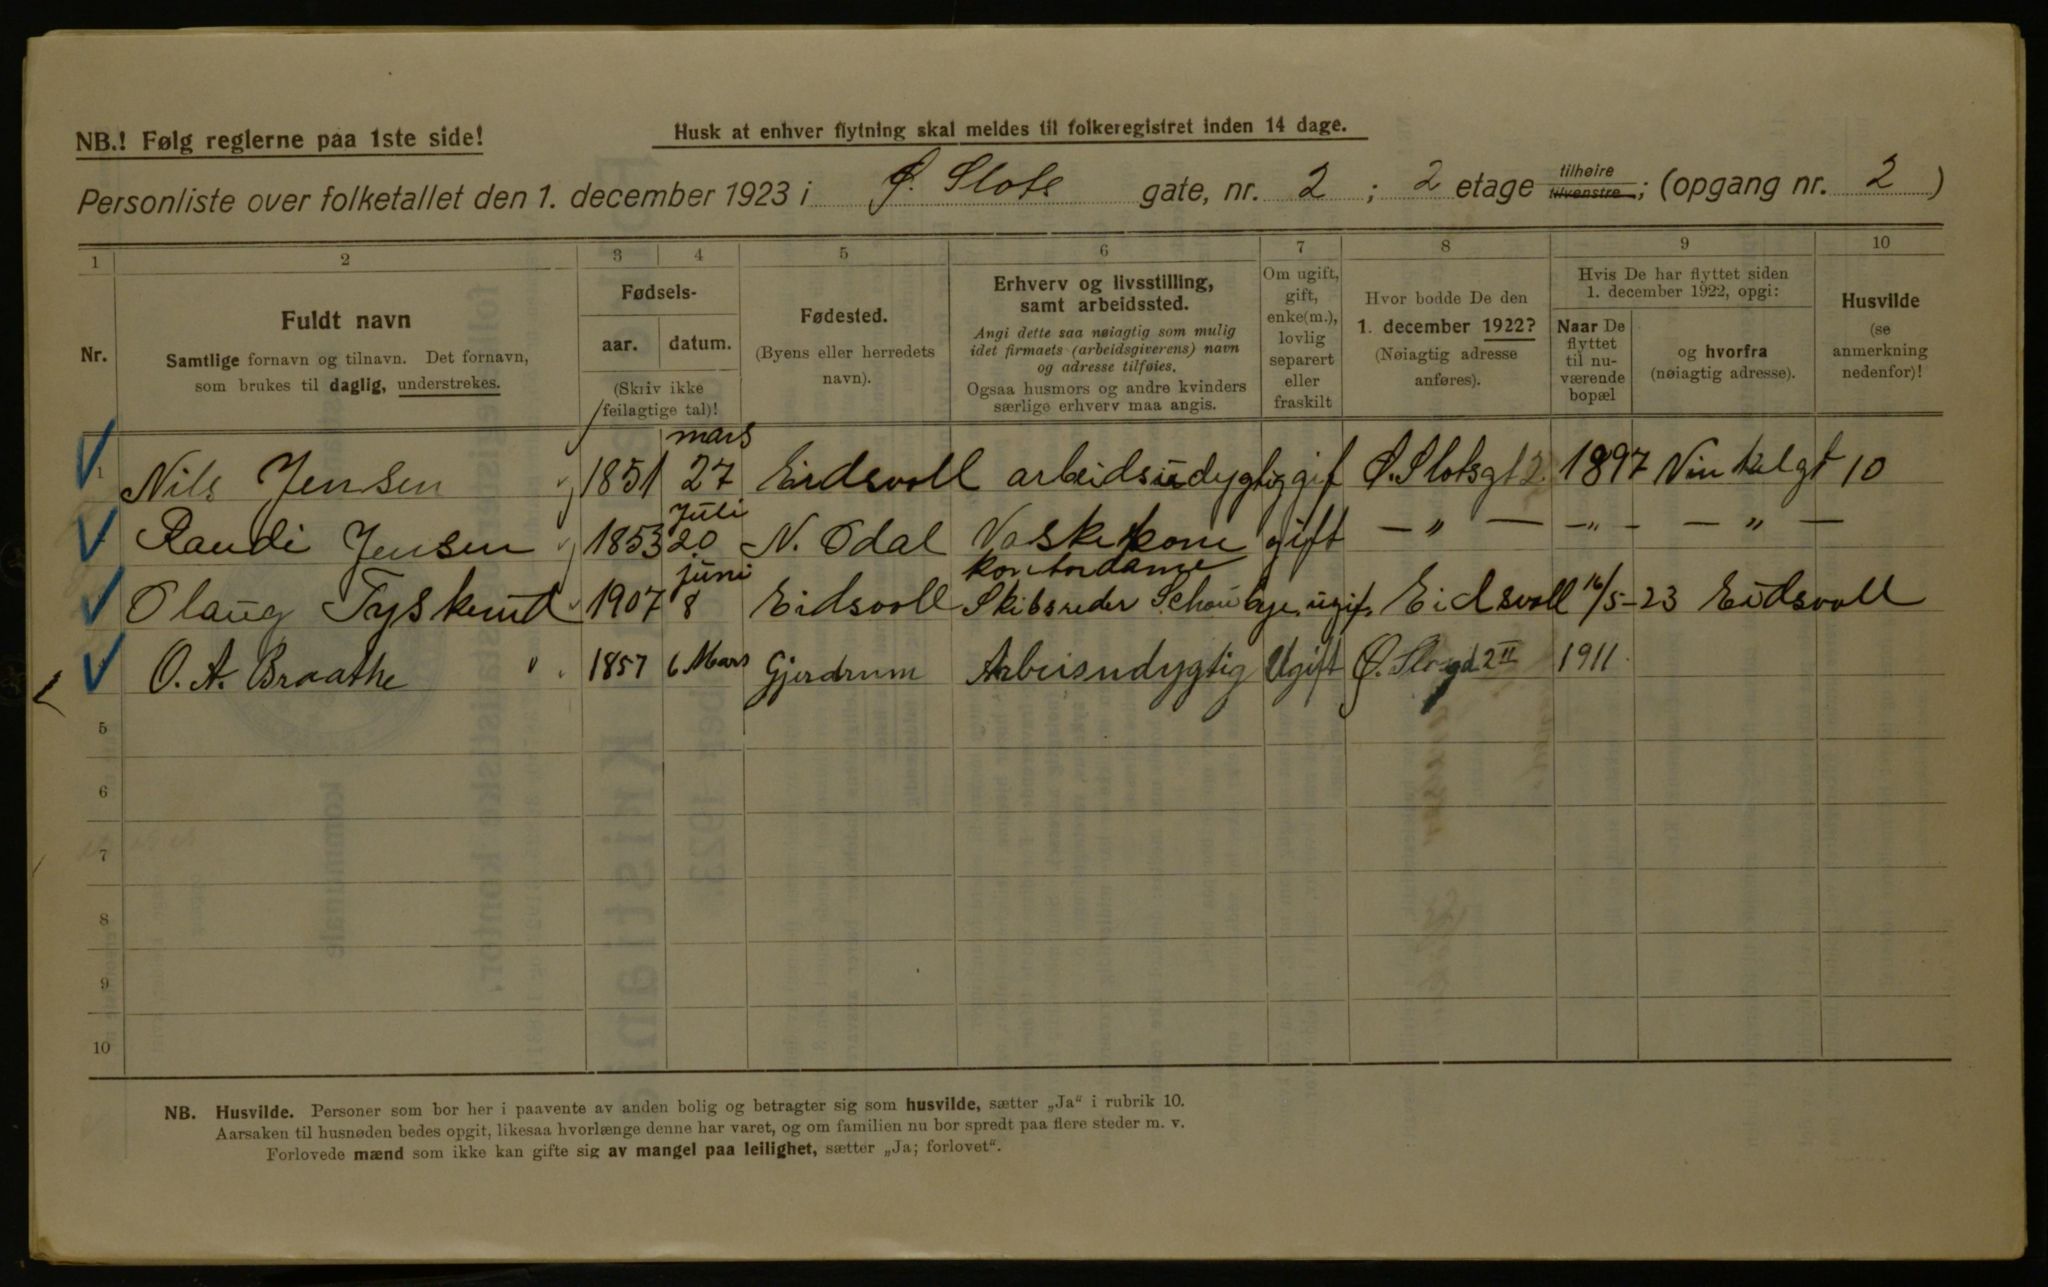 NB.! Følg reglerne paa 1ste side!
Husk at enhver flytning skal meldes til folkeregistret inden 14 dage.
Personliste over folketallet den 1. december 1923 i Ø. Slots gate, nr. 2 ; 2 etage tilhøire tilvenstre ; (opgang nr. 2 )
1 2 3 4 5 6 7 8 9 10
Nr.
Fuldt navn
Samtlige fornavn og tilnavn. Det fornavn,
som brukes til daglig, understrekes.
Fødsels-
aar. datum.
(Skriv ikke
feilagtige tal)!
Fødested.
(Byens eller herredets
navn).
Erhverv og livsstilling,
samt arbeidssted.
Angi dette saa nøiagtig som mulig
idet firmaets (arbeidsgiverens) navn
og adresse tilføies.
Ogsaa husmors og andre kvinders
særlige erhverv maa angis.
Om ugift,
gift,
enke(m.),
lovlig
separert
eller
fraskilt
Hvor bodde De den
1. december 1922?
(Nøiagtig adresse
anføres).
Hvis De har flyttet siden
1. december 1922, opgi:
Naar De
flyttet
til nu-
værende
bopæl
og hvorfra
(nøiagtig adresse).
Husvilde
(se
anmerkning
nedenfor)!
mars
1 Nils Jensen 1851 27 Eidsvoll arbeidsudygtig gif Ø. Slotsgt 2. 1897 Vinkelgt 10
juli
Randi Jensen 1853 20 N. Odal Vaskekone gift — " — — " — — " —
juni kontordame
Olaug Tyskerud 1907 8 Eidsvoll Skibsreder ugif. Eidsvoll 16/5-23 Eidsvoll
O. A. Braathe 1857 6 Mars Gjerdrum Arbeisudygtig Ugift 2 II 1911.
5
6
7
8
9
10
NB. Husvilde. Personer som bor her i paavente av anden bolig og betragter sig som husvilde, sætter „Ja“ i rubrik 10.
Aarsaken til husnøden bedes opgit, likesaa hvorlænge denne har varet, og om familien nu bor spredt paa flere steder m. v.
Forlovede mænd som ikke kan gifte sig av mangel paa leilighet, sætter „Ja; forlovet“.